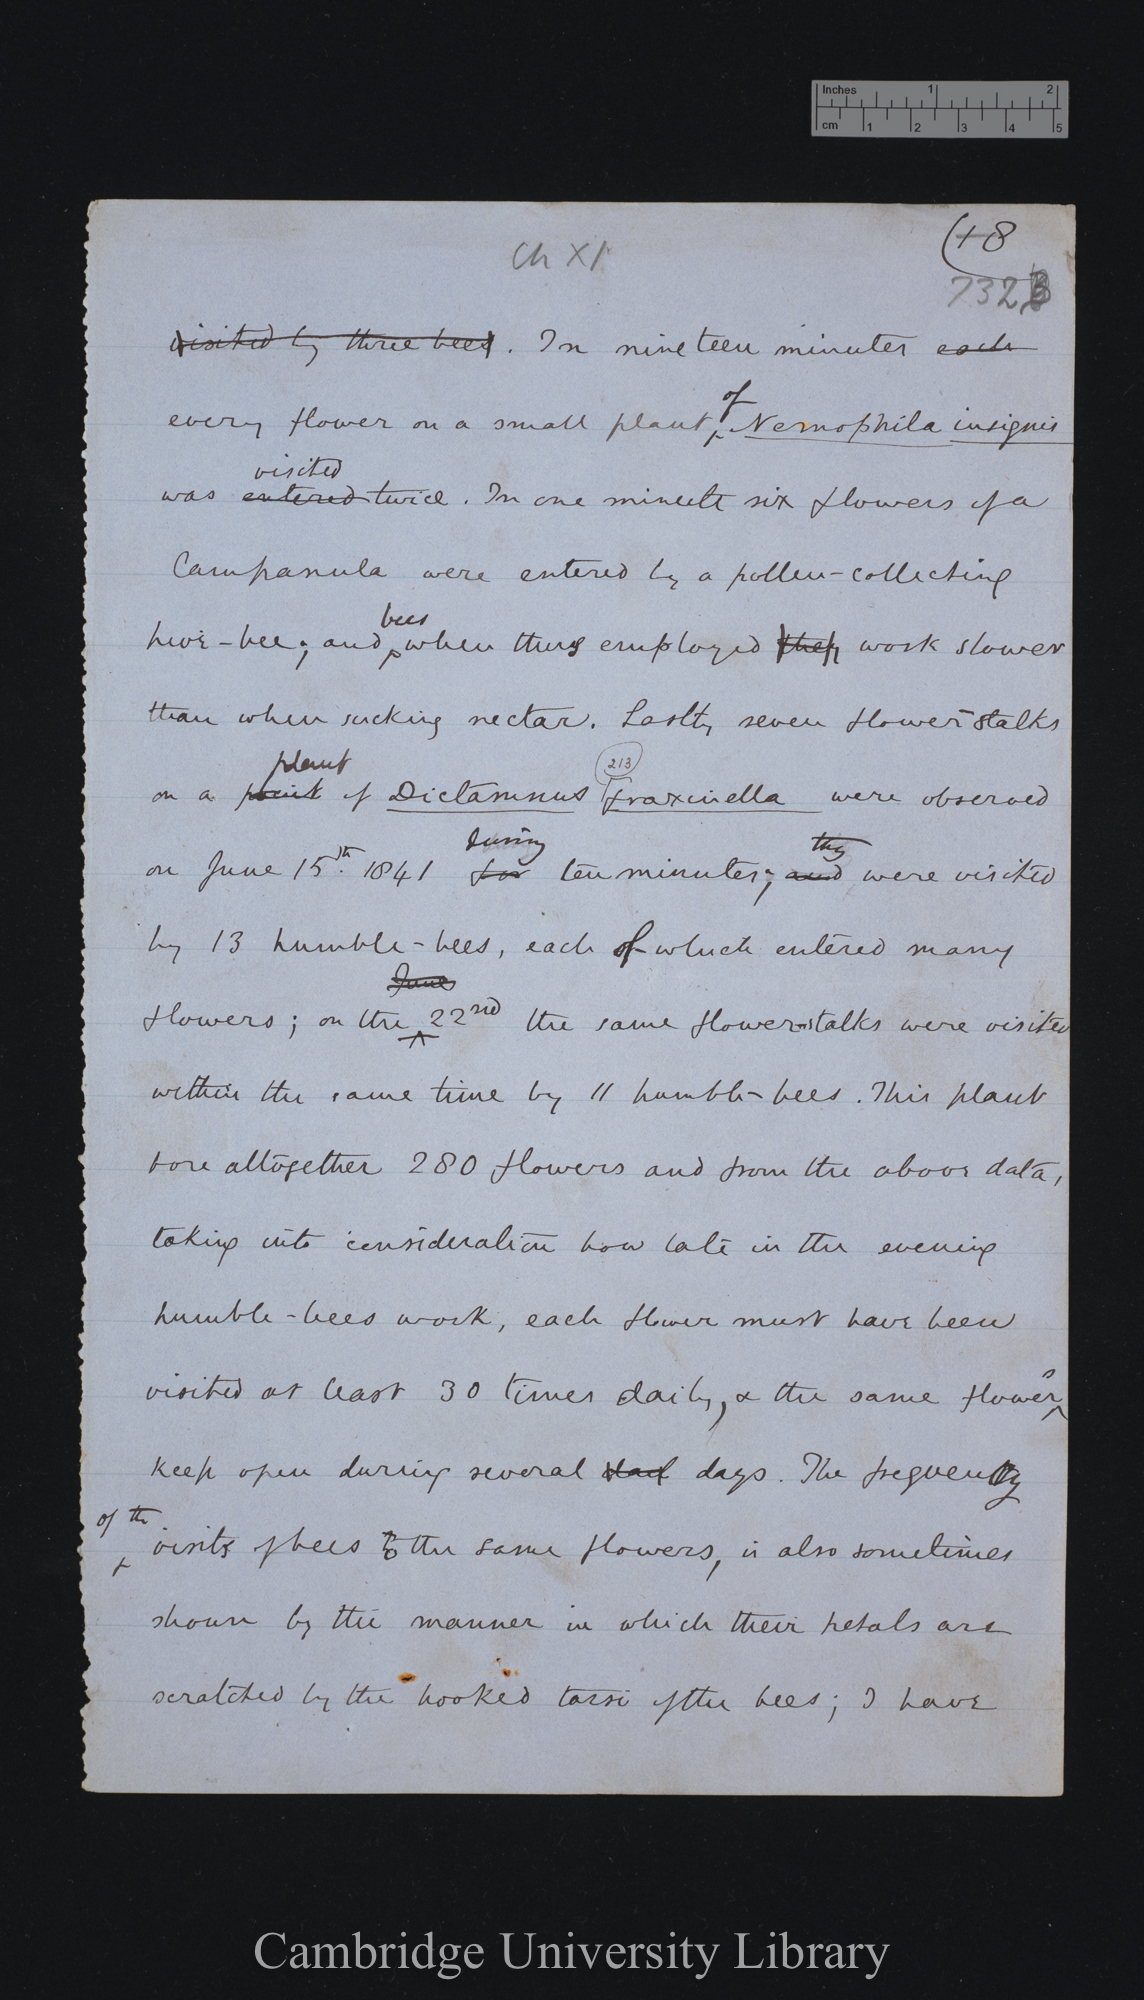 Inches 1 2
cm 1 2 3 4 5
(18
Ch XI
732
visited by three bees. In nineteen minutes each
of
every flower on a small plant, Nemophila insignis
visited
was entered twice. In one minute six flowers of a
Campanula were entered by a pollen-collecting
bees
hive-bee; and when thus employed they work slower
than when sucking nectar. Lastly seven flower-stalks
plant 213
on a point of Dictamnus fraxinella were observed
during they
on June 15th. 1841 for ten minutes; and were visited
by 13 humble-bees, each of which entered many
June
flowers; on the 22nd the same flower-stalks were visited
within the same time by 11 humble-bees. This plant
bore altogether 280 flowers and from the above data,
taking into consideration how late in the evening
humble-bees work, each flower must have been
s
visited at least 30 times daily, & the same flower
keep open during several days. The frequency
of the
visits of bees to the same flowers, is also sometimes
shown by the manner in which their petals are
scratched by the hooked tarsi of the bees; I have
Cambridge University Library